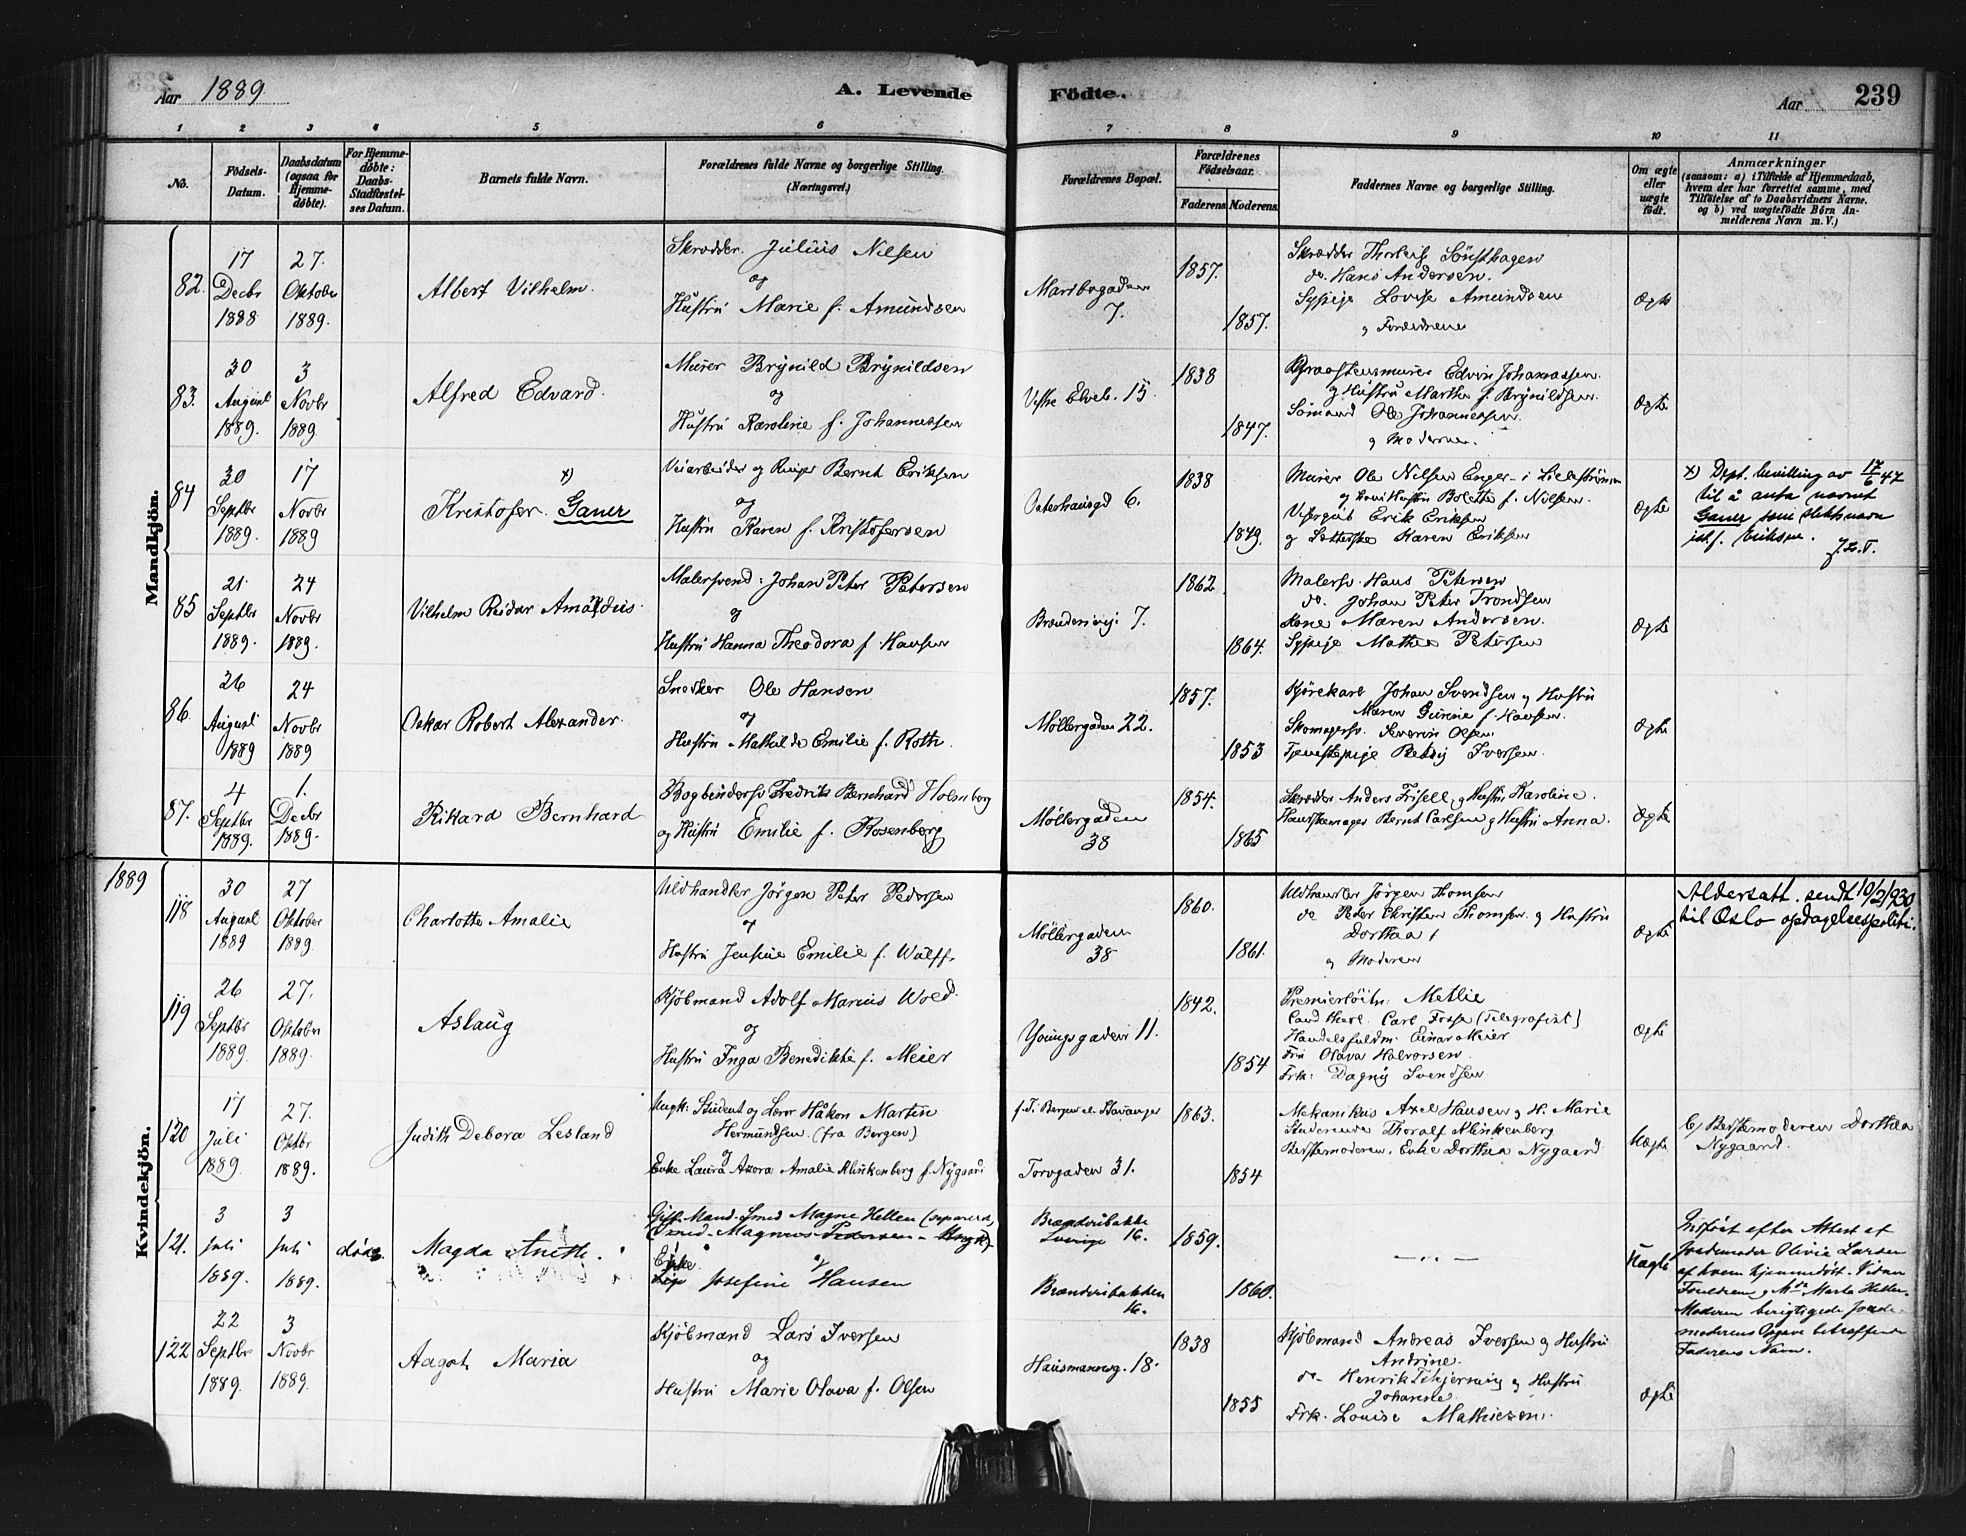 Aar 1889.
A. Levende Födte.
Aar
239
1 2 3 4 5 6 7 8 9 10 11
No.
Födsels-Datum.
Daabsdatum (ogsaa for Hjemme-döbte).
For Hjemme-döbte: Daabs-Stadfæstel-ses Datum.
Barnets fulde Navn.
Forældrenes fulde Navne og borgerlige Stilling.
(Næringsvei.)
Forældrenes Bopæl.
Forældrenes Födselsaar.
Faderens. Moderens.
Faddernes Navne og borgerlige Stilling.
Om ægte eller uægte födt.
Anmærkninger
(saasom: a) i Tilfælde af Hjemmedaab, hvem der har forrettet samme, med Tilföielse af to Daabsvidners Navne. og b) ved uægtefödte Börn An-melderens Navn m. V.)
Mandkjön.
82.
17 Decbr 1888
27. Oktober 1889.
Albert Vilhelm.
Skrædder. Julius Nilsen
og
Hustru Marie f. Amundsen
Maribogaden 7.
1857.
1857.
Skrædder Thorleif Sönsthagen
do. Hans Andersen.
Sypige Lovise Amundsen
og Forældrene
Ægte
83.
30 August 1889.
3 Novbr 1889
Alfred Edvard.
Murer Brynild Brynildsen
og
Hustru Karoline f. Johannessen
Vestre Elveb. 15.
1838
1847.
Graastensmurer Edvin Johannessen.
og Hustru Marthe f. Brynildsen.
Sömand Ole Johannessen.
og Moderen.
Ægte
84
30 Septbr 1889.
17 Novbr 1889
x)
Kristofer. Ganer
Veiarbeider og Ringer Bernt Eriksen
og
Hustru Karen f. Kristofersen
Osterhausgd 6.
1838
1849.
Murer Ole Nilsen Enger i Lilleströmm
og Hustru Bolette f. Nilsen.
Erik Eriksen
og Karen Eriksen
Ægte
x) Dept. bevilling av 17/6 47
til å anta navnet
Ganer som slektsnavn
istf. Eriksen.
85
21. Septbr 1889.
24 Novbr 1889.
Vilhelm Reidar Amandus.
Malersvend: Johan Peter Petersen
og
Hustru Hanna Theodora f. Hansen
Brænderivej 7.
1862
1864.
Malersv. Hans Petersen
do. Johan Peter Trondsen
Kone Maren Andersen.
Sypige Mathea Petersen
Ægte
86.
26 August 1889
24 Novbr 1889
Oskar Robert Alexander.
Snedker Ole Hansen
og
Hustru Mathilde Emilie f. Roth.
Möllergaden 22.
1857.
1853
Kjörekarl Johan Svendsen og Hustru
Maren Gurine f. Hansen.
Skomagersv. Severin Olsen.
Tjenestepige Betsy Iversen.
Ægte
87.
4 Septbr 1889.
1. Decbr 1889.
Rikard Bernhard
Bogbindersv Fredrik Bernhard Holmberg
og Hustru Emilie f. Rosenberg
Möllergaden 38
1854.
1865
Skrædder Anders Frisell, og Hustru Karoline.
Handskemager Bernt Carlsen og Hustru Anna.
Ægte
1889
Kvindekjön.
118
30 August 1889
27 Oktober 1889.
Charlotte Amalie
Uldhandler Jörgen Peter Pedersen
og
Hustru Jensine Emilie f. Wulff.
Möllergaden 38
1860.
1861.
Uldhandler Jörgen Thomsen
do Peder Christian Thomsen og Hustru
Dorthea
og Moderen
Ægte
Aldersatt. sendt 10/2/930
til Oslo opdagelsespoliti.
119
26 Septbr 1889.
27. Oktober 1889.
Aslaug
Kjöbmand Adolf Marius Wold.
og
Hustru Inga Benedikte f. Meier
Youngsgaden 11.
1842.
1854
Premierlöitn: Metlie
Cand. theol. Carl Fosse (Telegrafist)
Handelsfuldm. Einar Meier
Fru Olava Halvorsen.
Frk: Dagny Svendsen
Ægte
120
17 Juli 1889.
27. Oktbr 1889.
Judith Debora Lesland
Ungk: Student og Lærer Håkon Martin
Hermundsen. (fra Bergen)
og
Enke Laura Azora Amalie Klinkenberg f. Nygaard
f. T. Bergen el. Stavanger
Torvgaden 31.
1863.
1854
Mekanikus Axel Hansen og H. Marie
Studerende Thoralf Klinkenberg
Bedstemoderen, Enke Dorthea Nygaard
Uægte
b) Bedstemoderen Dorthea
Nygaard.
121.
3 Juli 1889.
3 Juli 1889.
död
Magda Anette.
Gift. Mand. Smed Magne Hellen (separeret)
Smed. Magnus Pedersen - Ungk.
og
Enke
Pige Josefine Hansen
Brænderibakke 16.
Sverige
Brænderibakken 16.
1859.
1860.
— „ —
Uægte
Indfört efter Attest af
Jordemoder Olivia Larsen
af hvem hjemmedöbt. Vidner
Forældrene og Mda Marta Hellen.
Moderen berigtigede Jorde-
moderens Opgave betræffende
Faderens Navn.
122
22 Septbr 1889.
3 Novbr 1889.
Aagot Maria
Kjöbmand Lars Iversen
og
Hustru Marie Olava f. Olsen
Hausmannsg. 18.
1838
1855
Kjöbmand Andreas Iversen og Hustru
Andrine.
do Henrik Tchjerning og Hustru
Johanne.
Frk. Louise Mathiesen.
Ægte